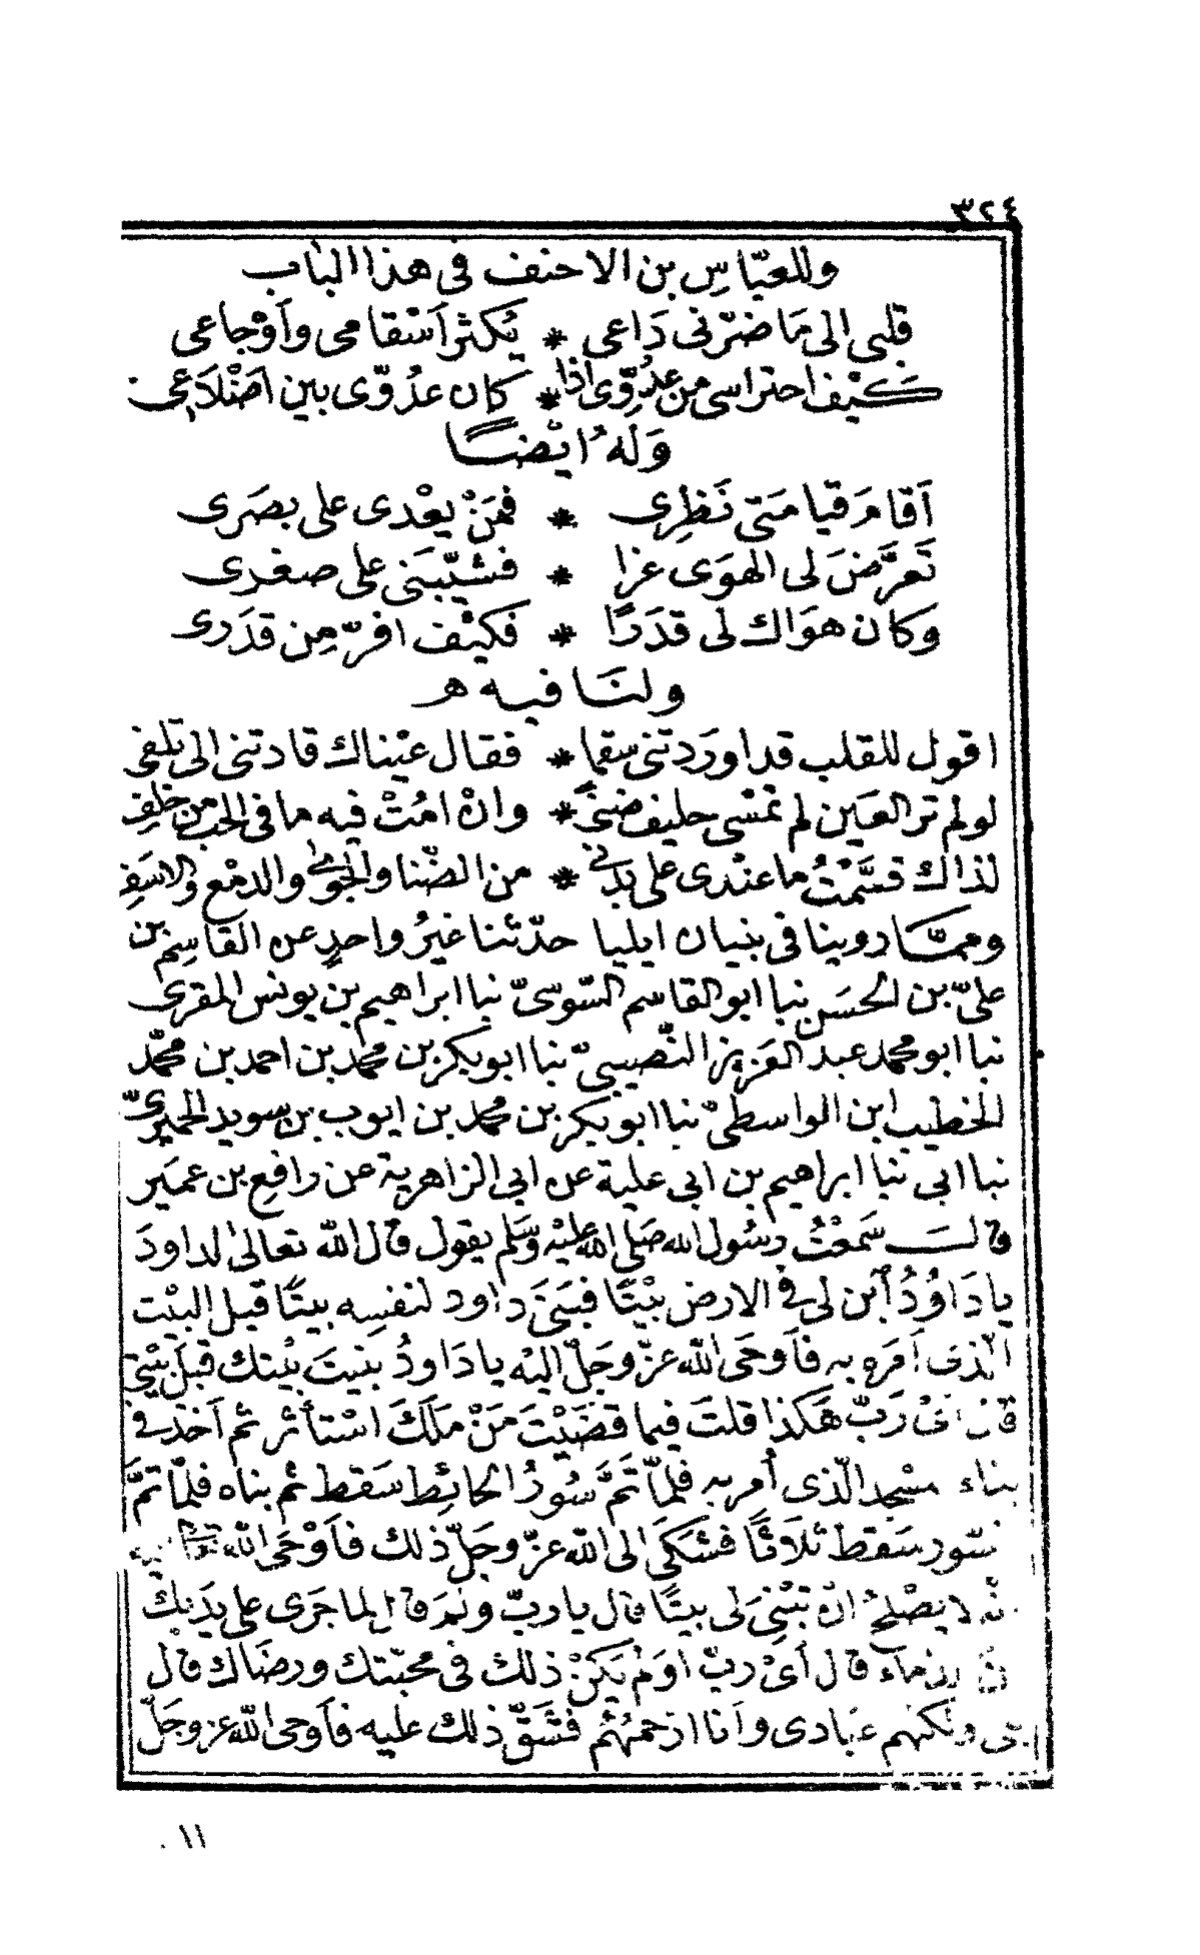 ٣٢٤
وللعبّاس بن الاحنف فى هذا الباب
قلبى الى مَا ضرّنى دَاعى * يُكثر اَسْقامى واَوْجاعى
كَيْف احتراسى من عدُوّى اذا * كان عدُوّى بين اَضْلاَعى
وَلَهُ ايْضًا
اَقامَ قيامَتى نَظرِى * فمَنْ يعْدى على بصَرى
تَعرَّضَ لى الهوَى عزا * فشيّبَنى على صغرى
وكان هوَاك لى قدَرًا * فكيْف افرّ مِن قدَرى
ولنَا فيه ه
اقول للقلب قد اورَدتنى سقما * فقال عيْناك قادتنى الى تلفى
لو لم تر العَين لم تمسى حليف ضنًى * وانْ امُتْ فيه ما فى الحب من خلفِ
لذاك قسَّمْتُ ما عنْدى على بدنى * من الضّنا والجوى والدمْع والاسَفِ
وممَّا روينا فى بنيان ايليا حدّثنا غيرُ واحدٍ عن القاسِم بن
علىّ بن الحسَن نبا ابو القاسم السّوسىّ نبا ابراهيم بن يونس المقرى
نبا ابو محمد عبد العَزيز النّصيبىّ نبا ابو بكر بن محمد بن احمد بن محمّد
الخطيب ابن الواسطىّ نبا ابو بكر بن محمد بن ايوب بن سويد الحميرىّ
نبا ابى نبا ابراهيم بن ابى علية عن ابى الزاهرية عن رافِع بن عميَر
قالـــَ سَمعْتُ رسُول الله صَلى الله عليْه وَسَلم يقول قال الله تعالىٰ لداودَ
يا دَاوُدُ اُبْن لى فى الارض بيْتًا فبنَى داود لنفسِه بيتًا قبل البيْت
الّذى اَمَره به فاَوحَى الله عزّ وجَلّ اليْه يا دَاودُ بنيتَ بيْتك قبلَ بيْتى
قال اىْ رَبّ هَكذا قلتَ فيما قضَيْتَ مَنْ مَلَكَ اسْتأثر ثم اَخذ فى
بناء مسْجد الّذى اُمر به فلمّا تَمَّ سُورُ الحائِط سَقط ثم بناه فلمّا تمَّ
سّور سَقط ثلاَثًا فشكَى الى الله عزّ وجَلّ ذلك فاَوْحَى الله
نّه لا يصْلح اَنْ تبْنىَ لى بيتًا قال يا ربّ ولمَ قال لما جَرى على يدَيك
من الدماء قال اىْ ربّ اوَلم يَكنْ ذلك فى محبّتك ورضَاك قال
بلى ولكنهم عبَادى واَنا ارْحمهُمْ فشَقّ ذلك عليه فاَوحى الله عز وجَلّ
١١